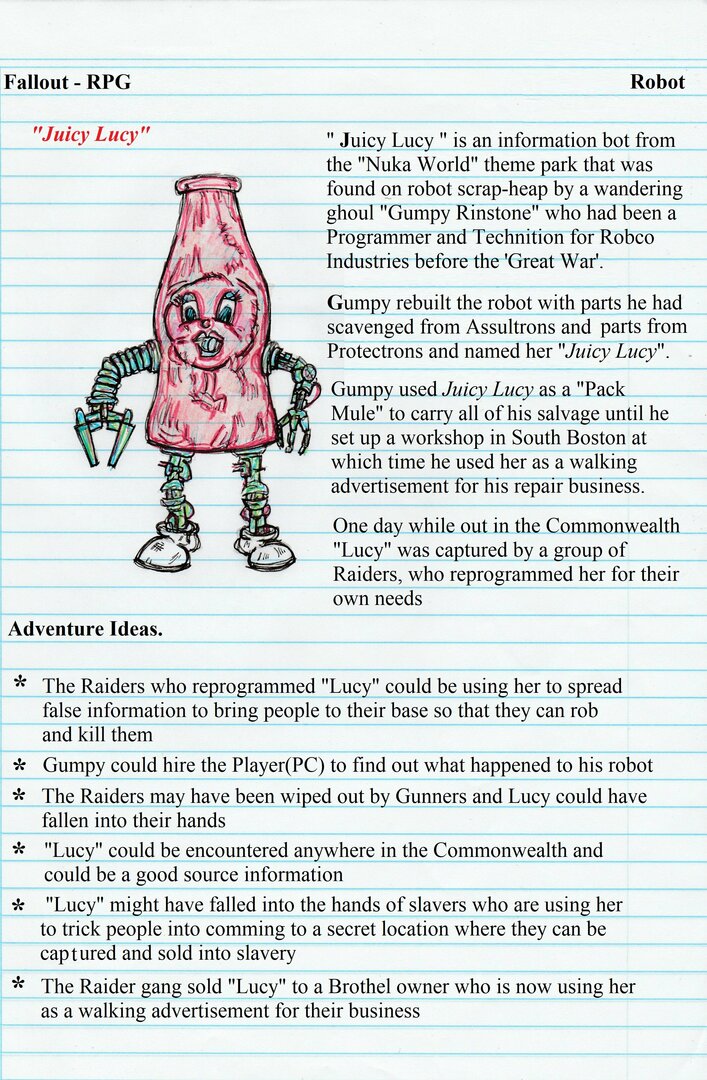 Fallout - RPG
Robot
"Juicy Lucy"
" Juicy Lucy " is an information bot from
the "Nuka World" theme park that was
found on robot scrap-heap by a wandering
ghoul "Gumpy Rinstone" who had been a
Programmer and Technition for Robco
Industries before the 'Great War'.
Gumpy rebuilt the robot with parts he had
scavenged from Assultrons and parts from
Protectrons and named her "Juicy Lucy".
Gumpy used Juicy Lucy as a "Pack
Mule" to carry all of his salvage until he
set up a workshop in South Boston at
which time he used her as a walking
advertisement for his repair business.
One day while out in the Commonwealth
"Lucy" was captured by a group of
Raiders, who reprogrammed her for their
own needs
Adventure Ideas.
* The Raiders who reprogrammed "Lucy" could be using her to spread
false information to bring people to their base so that they can rob
and kill them
* Gumpy could hire the Player(PC) to find out what happened to his robot
* The Raiders may have been wiped out by Gunners and Lucy could have
fallen into their hands
* "Lucy" could be encountered anywhere in the Commonwealth and
could be a good source information
* "Lucy" might have falled into the hands of slavers who are using her
to trick people into comming to a secret location where they can be
captured and sold into slavery
* The Raider gang sold "Lucy" to a Brothel owner who is now using her
as a walking advertisement for their business